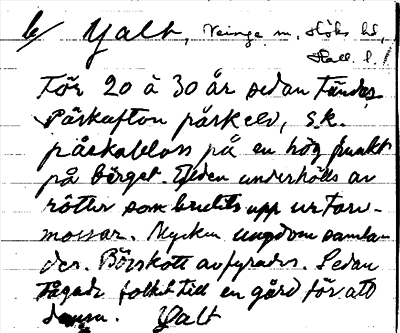 b/ Yalt, Veinge m, Höks hd,
Hall. l.
För 20 à 30 år sedan tändes
Påskafton påskeld, s.k.
påskabloss på en hög punkt
på berget. Elden underhölls av
rötter som brutits upp ur torv-
mossar. Mycken ungdom samla-
des. Bösskott avfyrades. Sedan
tågade folket till en gård för att
dansa. Yalt